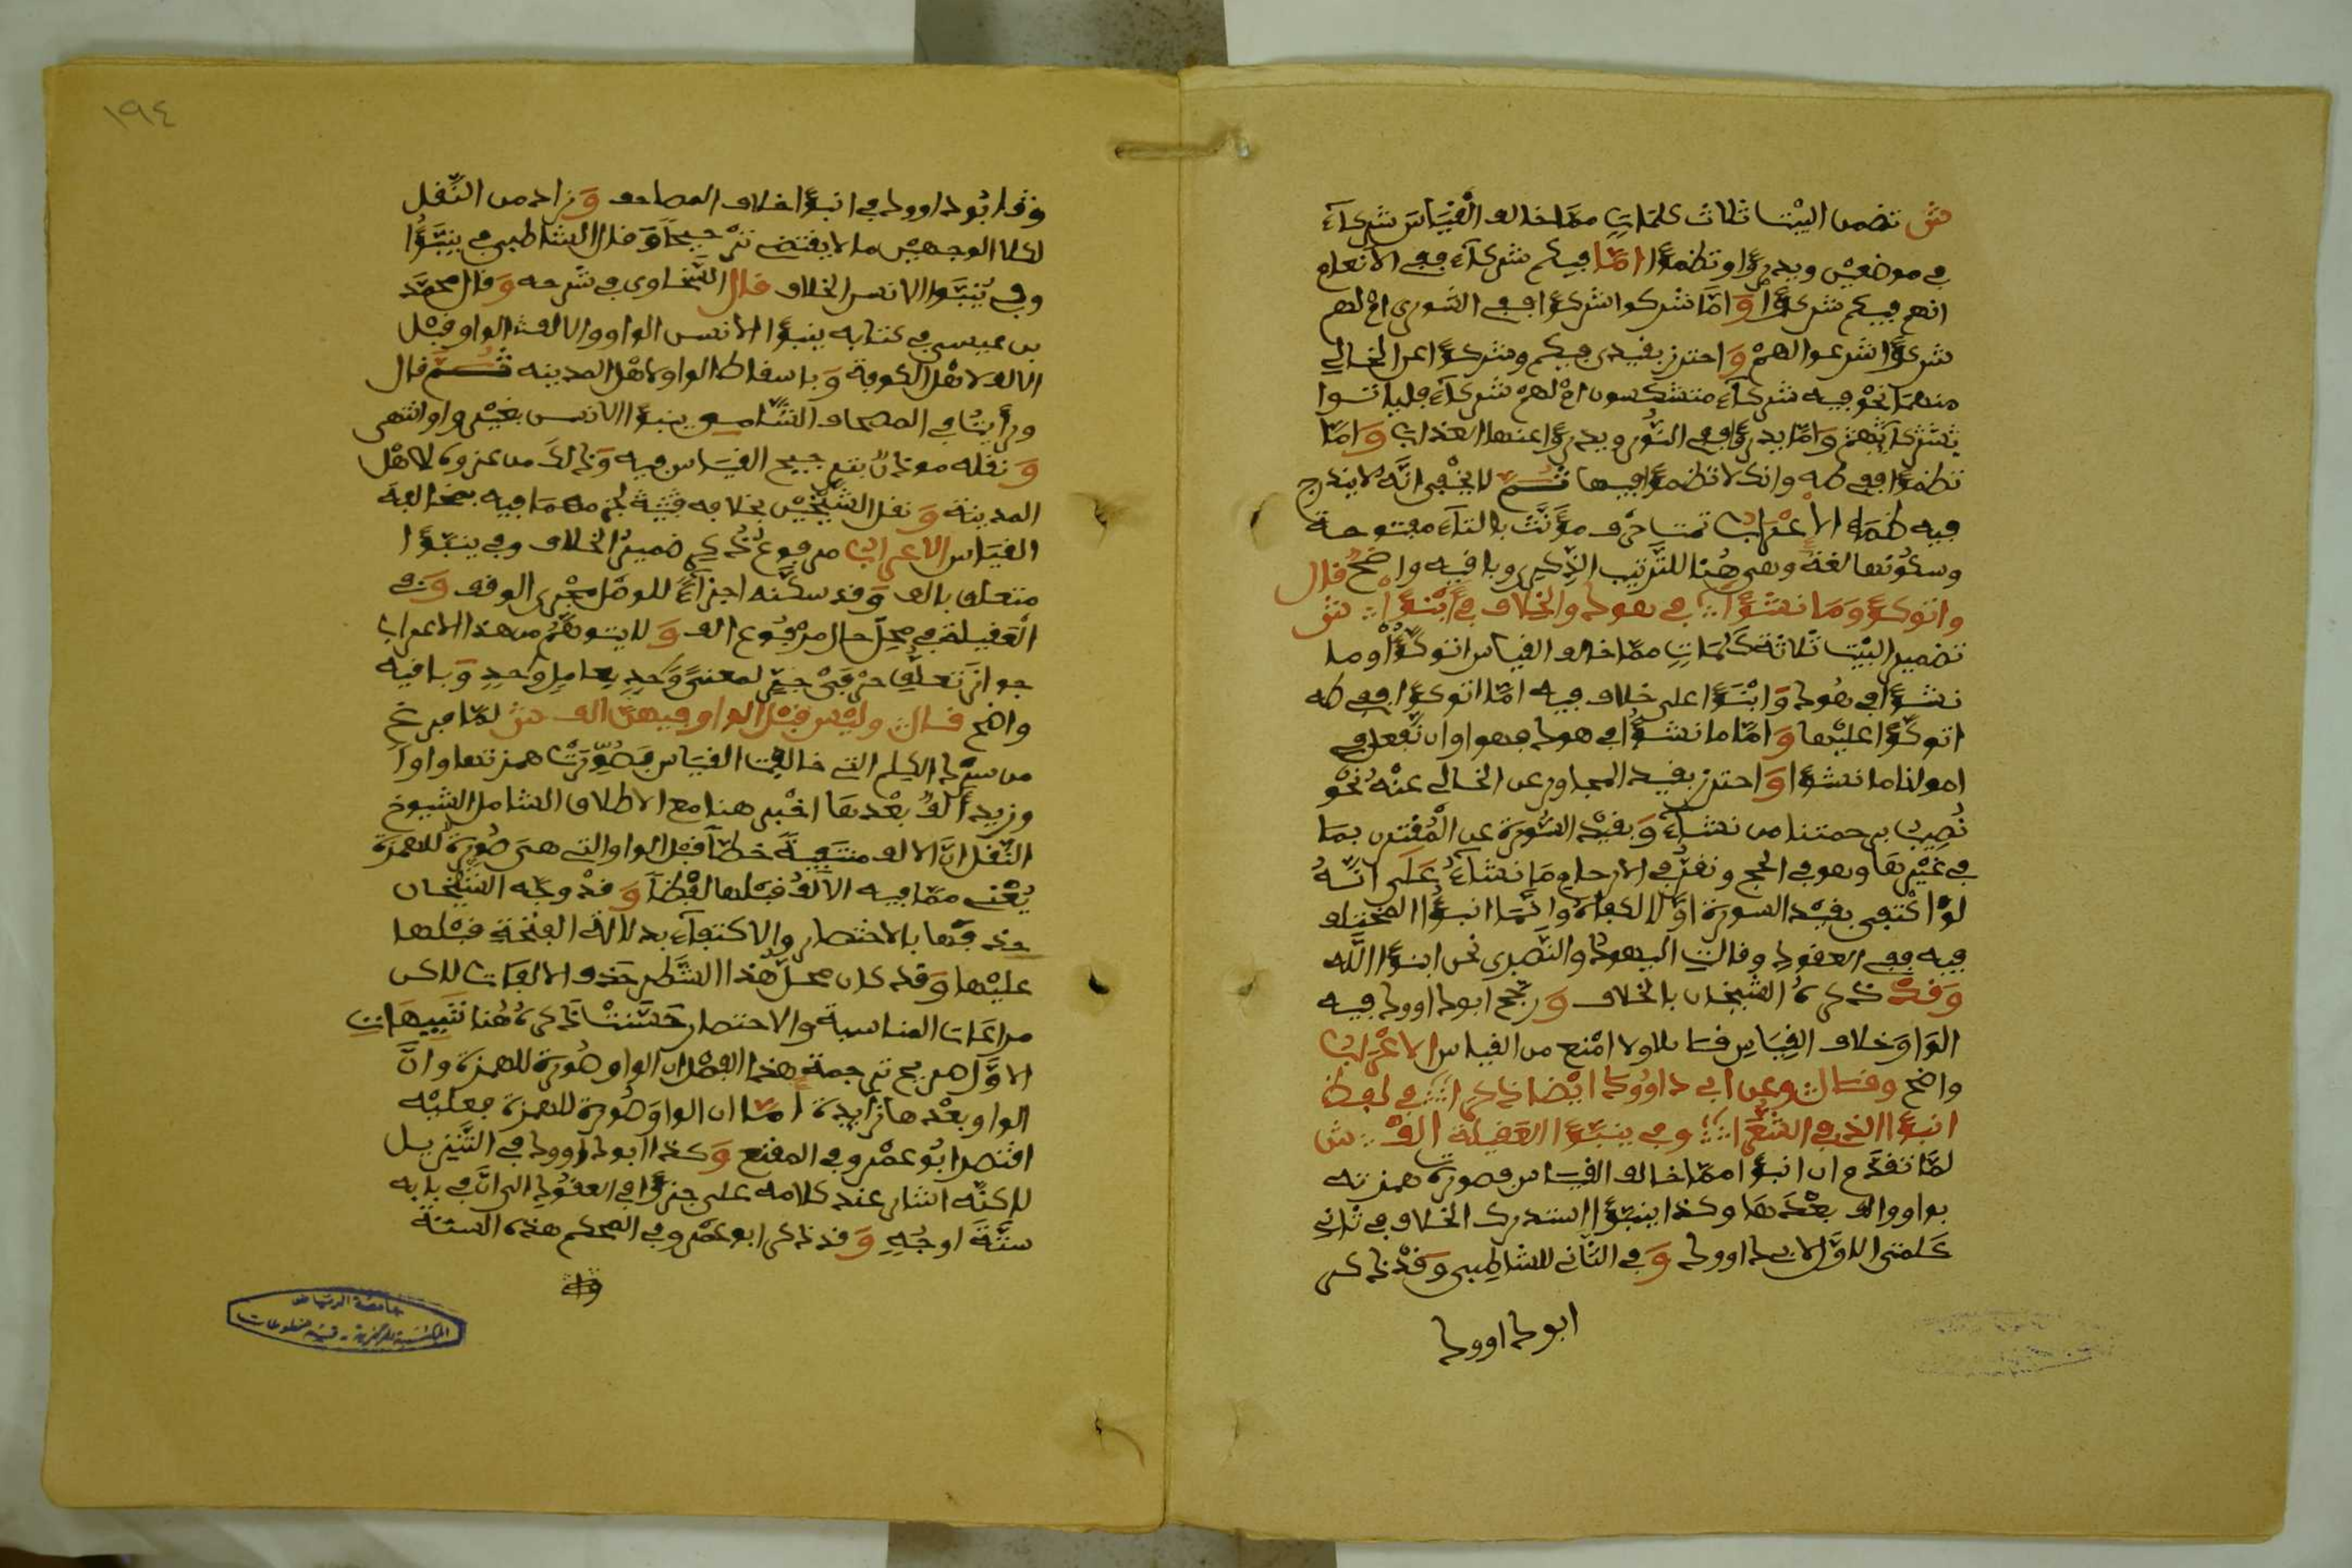 ش تضمن البيت ثلاث كلمات مما خالف القياس شركاء
في موضعين ويدرؤا وتظمؤا اما فيكم شركاء ففي الانعام
انهم فيكم شركؤا واما شركوا شركؤا ففي الشورى ام لهم
شركؤا شرعوا لهم واحترز بقيدي فيكم وشركؤا عن الخالي
منهما نحو فيه شركاء متشكسون ام لهم شركاء فلياتوا
بشركائهم واما يدرؤا ففي النور ويدرؤا عنها العذاب واما
تظمؤا ففي طه وانك لا تظمؤا فيها ثم لا يخفى انه لا يندرج
فيه ظمأ الاعراب ثمت حرف مؤنث بالتاء مفتوحة
وسكونها لغة وهي هنا للترتيب الذكري وباقيه واضح قال
واتوكؤ وما نشؤا في هود والخلاف في ابنؤا ش
تضمن البيت ثلاثة كلمات مما خالف القياس اتوكؤا وما
نشؤا في هود وابنؤا على خلاف فيه اما اتوكؤا ففي طه
اتوكؤا عليها واما ما نشؤا في هود فهو او ان نفعل في
امولنا ما نشؤا واحترز بقيد المجاور عن الخالي عنه نحو
نصيب برحمتنا من نشاء وبقيد السورة عن المقترن بما
في غيرها وهو في الحج ونقر في الارحام ما نشاء على انه
لو اكتفى بقيد السورة اولا لكفاه واما ابنؤا المختلف
فيه ففي العقود وقالت اليهود والنصرى نحن ابنؤا الله
وقد ذكره الشيخان بالخلاف ورجح ابو داوود فيه
الواو خلاف القياس قائلا ولا امنع من القياس الاعراب
واضح وقال وعن ابي داوود ايضا ذكرا في لفظ
انبؤا الذي في الشعرا وفي ينبؤا العقيلة الف ش
لما تقدم ان انبؤا مما خالف القياس فصورت همزته
بواو والف بعدها وكذا ينبؤا استدرك الخلاف في ثاني
كلمتي الاول لابي داوود وفي الثاني للشاطبي وقد ذكر
ابو داوود
وقد ابو داوود في انبؤا خلاف المصاحف وزاد من النقل
لكلا الوجهين ما لا يقتضي ترجيحا وقال الشاطبي في ينبؤا
وفي ينبؤا الانسن الخلاف قال السخاوي في شرحه وقال محمد
بن عيسى في كتابه ينبؤا الانسن الواو والالف الواو قبل
الالف لاهل الكوفة وباسقاط الواو لاهل المدينه ثم قال
ورأيت في المصحف الشامي ينبؤا الانسن بغير واو انتهى
ونقله موذن بترجيح القياس فيه وذلك من عزوه لاهل
المدينة ونقل الشيخين بخلافه فتية لجزمهما فيه بمخالفة
القياس الاعراب مرفوع ذكر ضمير الخلاف وفي ينبؤا
متعلق بالف وقد سكنه اجزاء للوصل مجرى الوقف وفي
العقيلة في محل حال مرفوع الف ولا يتوهم من هذا الاعراب
جواز تعلق حرفي جر لمعنى وحد بعامل وحد وباقيه
واضح قال وليس قبل الواو فيهن الف ش لما فرغ
من سرد الكلم التي خالفت القياس فصورت همزتها واوا
وزيد الف بعدها اخبر هنا مع الاطلاق الشامل الشيوخ
النقل ان الالف منتفية خطا قبل الواو التي هي صورة للهمزة
يعني مما فيه الالف قبلها لفظا وقد وجه الشيخان
حذفها بالاختصار والاكتفاء بدلالة الفتحة قبلها
عليها وقد كان محل هذا الشطر حذف الالفات لاكن
مراعات المناسبة والاختصار حسنت ذكره هنا تنبيهات
الاول صريح ترجمة هذا الفصل ان الواو صورة للهمزة وان
الواو بعدها زايدة اما ان الواو صورة للهمزة فعليه
اقتصر ابو عمرو في المقنع وكذا ابو داوود في التنزيل
لاكنه اشار عند كلامه على جزؤا في العقود الى ان في بابه
ستة اوجه وقد ذكر ابو عمرو في المحكم هذه الستة
١٩٤
جامعة الرياض
المكتبة المركزية - قسم مخطوطات